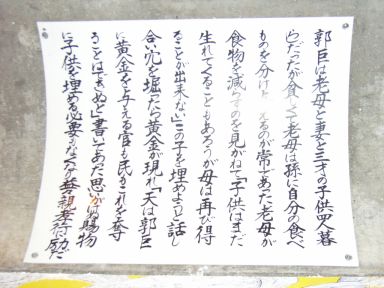 郭巨は老母と妻と三才の子供四人暮
らだったが貧しくて老母は孫に自分の食べ
ものを分け えるのが常であった老母が
食物を減らすのを見かねて「子供はまだ
生れてくることもあろうが母は再び得
ることが出来ない」この子を埋めようと話し
合い穴を堀たら黄金が現れ「天は郭巨
に黄金を与える官も民もこれを奪
ることはできぬと」書いてあった思いがけぬ賜物
に子供を埋める必要もなくなり益々親孝行励だ